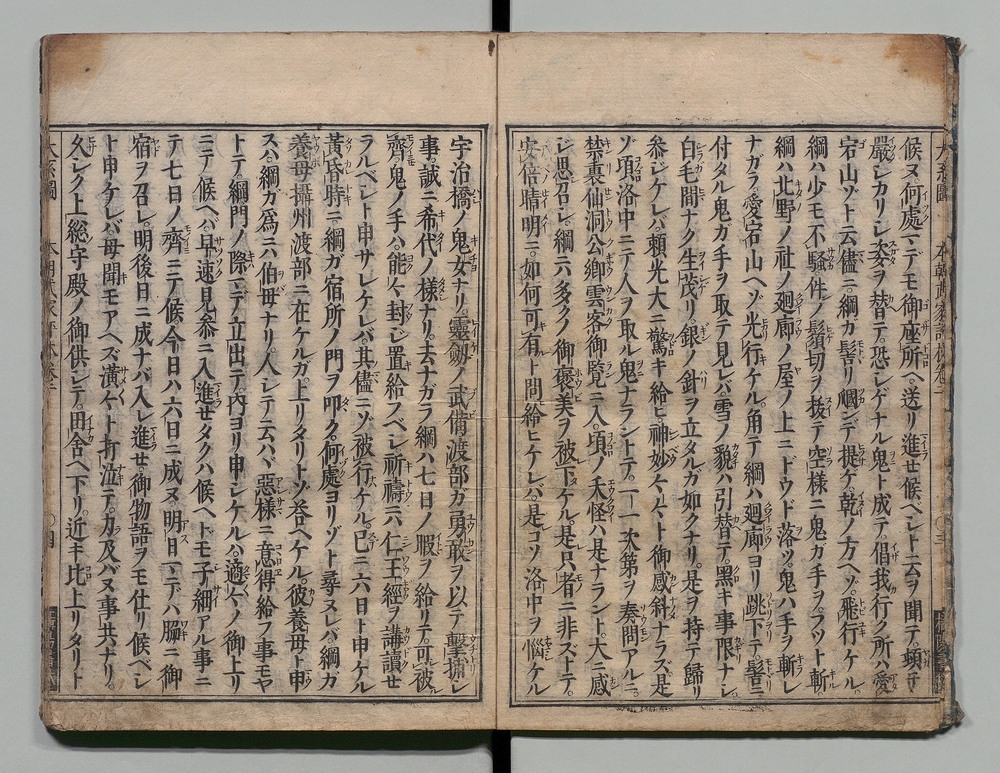 候ヌ何處マデモ御座所ヘ送リ進セ候ヘシト云ヲ聞テ頓テ
嚴シカリシ姿ヲ替テ恐シゲナル鬼ト成テ倡我行ク所ハ愛
宕山ゾト云儘ニ綱カ髻リ爴ンデ提ゲ乾ノ方ヘゾ飛行ケル
綱ハ少モ不騒件ノ鬚切ヲ拔テ空樣ニ鬼ガ手ヲフツト斬
綱ハ北野ノ社ノ廻廊ノ屋ノ上ニドウド落ツ鬼ハ手ヲ斬レ
ナガラ愛宕山ヘゾ光行ケル角テ綱ハ廻廊ヨリ跳下テ髻ニ
付タル鬼ガ手ヲ取テ見レバ雪ノ貌ハ引替テ黑キ事限ナシ
白毛間ナク生茂リ銀ノ針ヲ立タルガ如クナリ是ヲ持テ歸リ
參シケレバ賴光大ニ驚キ給ヒ神妙々々ト御感斜ナラズ是
ゾ項洛中ニテ人ヲ取ル鬼ナラントテ一一次第ヲ奏問アルニ
禁裏仙洞公卿雲客御覧ニ入頃ノ夭怪ハ是ナラント大ニ感
シ思召シ綱ニ六多クノ御褒美ヲ被下ケル是只者ニ非ズトテ
安倍晴明ニ如何可有ト問給ヒケレバ是コソ洛中ヲ惱ケル
宇治橋ノ鬼女ナリ靈劔ノ武備渡部ガ勇敢ヲ以テ擊捕シ
事誠ニ希代ノ樣ナリ去ナガラ綱ハ七日ノ暇ヲ給リテ可被
齊鬼ノ手ハ能々封シ置給フベシ祈禱ニハ仁王經ヲ講讀せ
ラルベシト申サレケレバ其儘ニゾ被行ケル已ニ六日ト申ケル
黃昏時ニ綱ガ宿所ノ門ヲ叩ク何處ヨリゾト尋ヌレバ綱ガ
養母攝州渡部ニ在ケルガ上リタリトゾ答ヘケル彼養母ト申
スハ綱ガ爲ニハ伯母ナリ人シテ云ハヾ惡樣ニ意得給フ事モヤ
トテ綱門ノ際マデ立出テ内ヨリ申シケルハ適々ノ御上リ
ニテ候ヘバ早速見參ニ入進せタクハ候ヘトモ子細アル事ニ
テ七日ノ齊ニテ候今日ハ六日ニ成ヌ明日マデハ脇ニ御
宿ヲ召レ明後日ニ成ナバ入レ進せ御物語ヲモ仕リ候ベシ
ト申ケレバ母聞モアヘズ潸々ト打泣テ力及バヌ事共ナリ
久シク上総守殿ノ御供シテ田舍ヘ下リ近キ比上リタリト